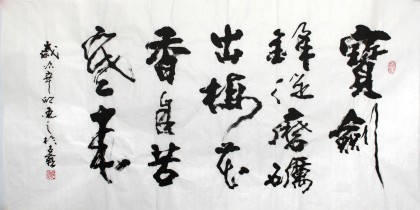 寶劍
鋒從磨礪
出梅花
香自苦
寒來
歲次辛卯